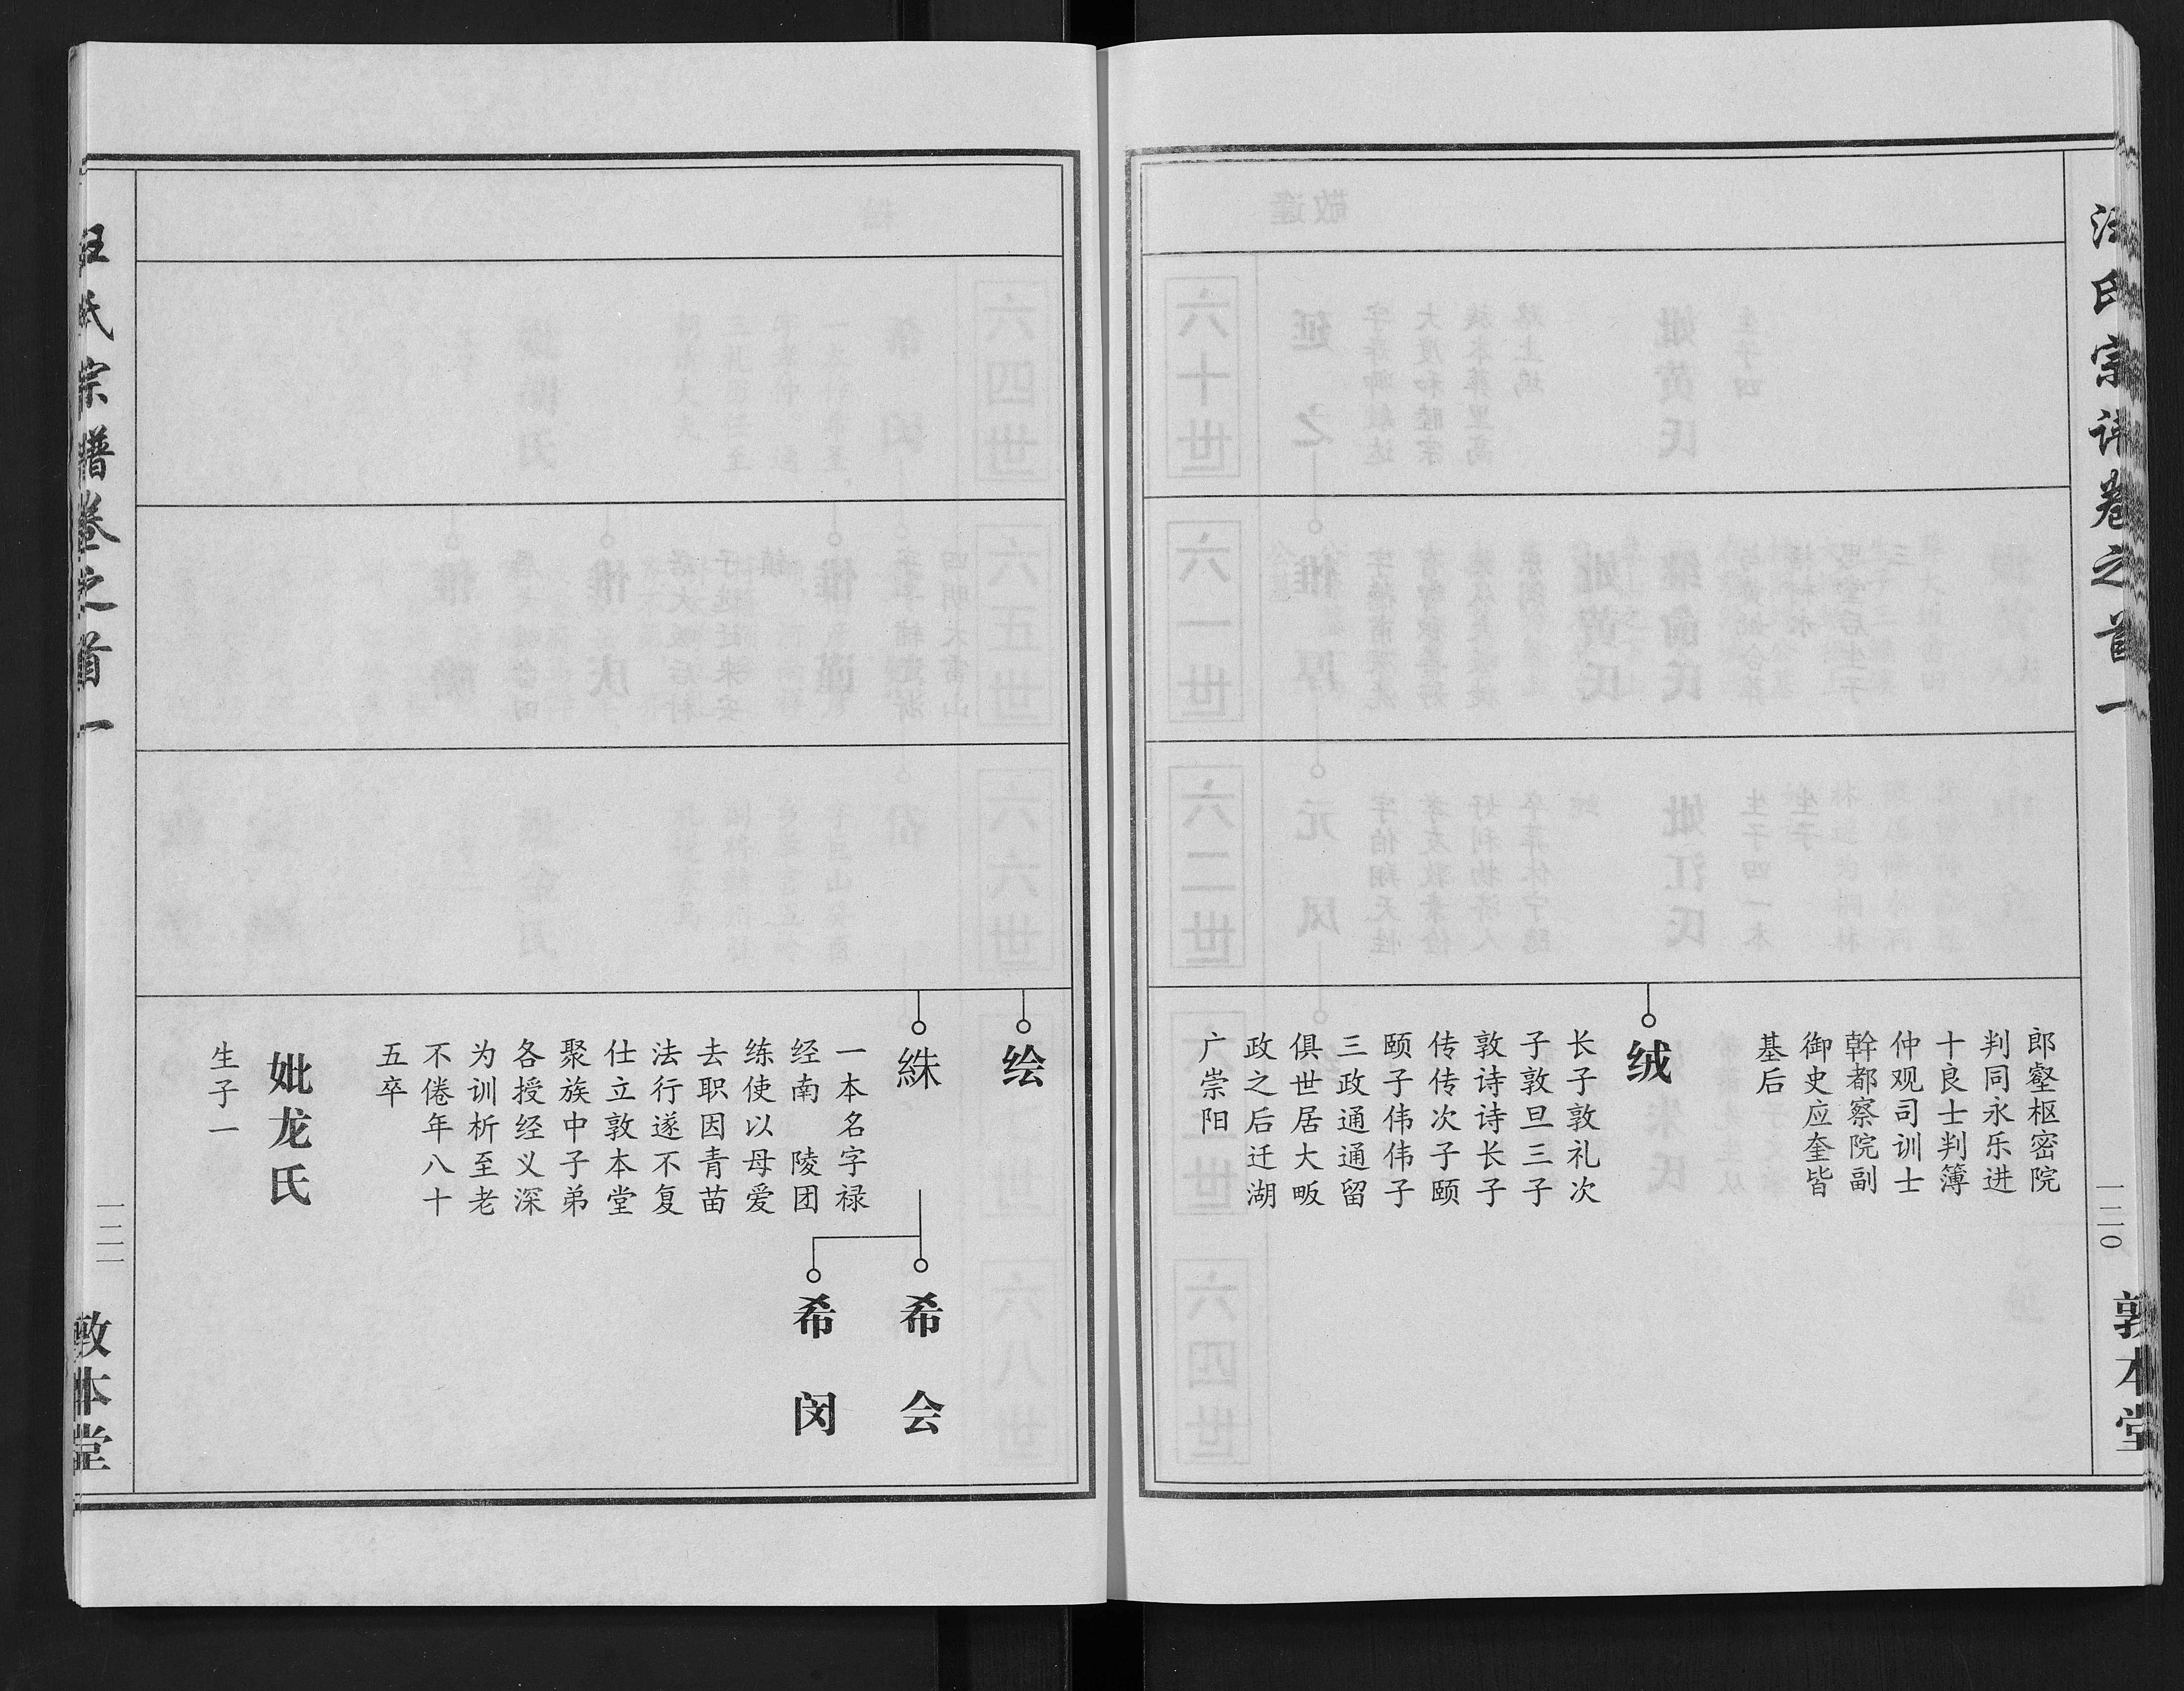 汪氏宗谱卷之首一
一二〇
敦本堂
郎壑枢密院
判同永乐进
十良士判簿
仲观司训士
幹都察院副
御史应奎皆
基后
绒
长子敦礼次
子敦旦三子
敦诗诗长子
传传次子颐
颐子伟伟子
三政通通留
俱世居大畈
政之后迁湖
广崇阳
绘
絑
一本名字禄
经南 陵团
练使以母爱
去职因青苗
法行遂不复
仕立敦本堂
聚族中子弟
各授经义深
为训析至老
不倦年八十
五卒
妣龙氏
生子一
希会
希闵
汪氏宗谱卷之首一
一二一
敦本堂